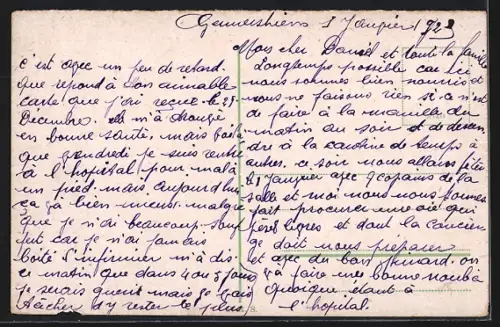 8 Janvier 1923
Mon cher Daniel et toute la famille
c'est avec un peu de retard
que répond à ton aimable
carte que j'ai reçue le 29
Décembre. elle m'a trouvé
en bonne santé, mais voilà
que vendredi je suis rentré
à l'hôpital pour mal à
un pied. mais aujourd'hui
ça va bien mieux. malgré
que je n'ai beaucoup souf
fert car je n'ai jamais
boité l'infirmier m'a dit
ce matin que dans 4 ou 5 jours
je serais guérit mais je vais
tâcher d'y rester le plus
longtemps possible car ici
nous sommes bien nourris et
nous ne faisons rien si ce n'est
de faire à la manille du
matin au soir et de descen
dre à la cantine de temps à
autres. ce soir nous allons fêter
le 8 janvier avec 9 copains de la
salle et moi nous nous sommes
fait procurer une oie qui
pèse livres et dont la cantinière
doit nous préparer
et avec du bon pinard, on
va faire une bonne nouba
quoique étant à
l'hôpital.